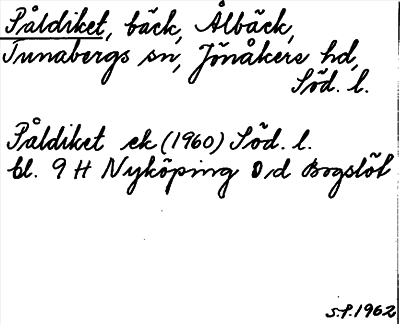 Påldiket, bäck, Ålbäck,
Tunabergs sn, Jönåkers hd,
Söd. l.
Påldiket ek (1960) Söd. l.
bl. 9 H Nyköping 0 d Bogslöt
S.P. 1962